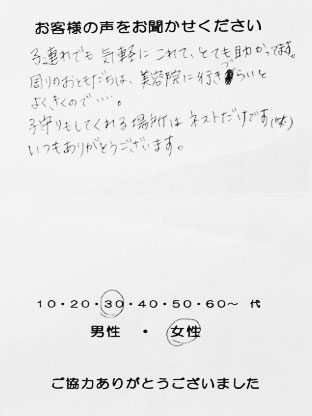 お客様の声をお聞かせください
子連れでも気軽にこれて、とても助かってます。
周りのおともだちは、美容院に行きづらいと
よくきくので…。
子守りもしてくれる場所はネストだけです(笑)
いつもありがとうございます。
10・20・30・40・50・60～ 代
男性 ・ 女性
ご協力ありがとうございました